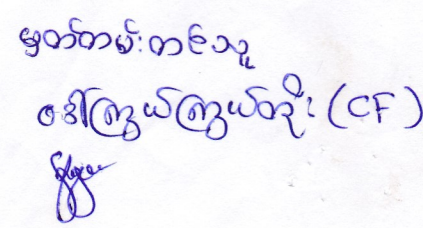 မှတ်တမ်းတင်သူ
ဒေါ်ကြွယ်ကြွယ်တိုး (CF)